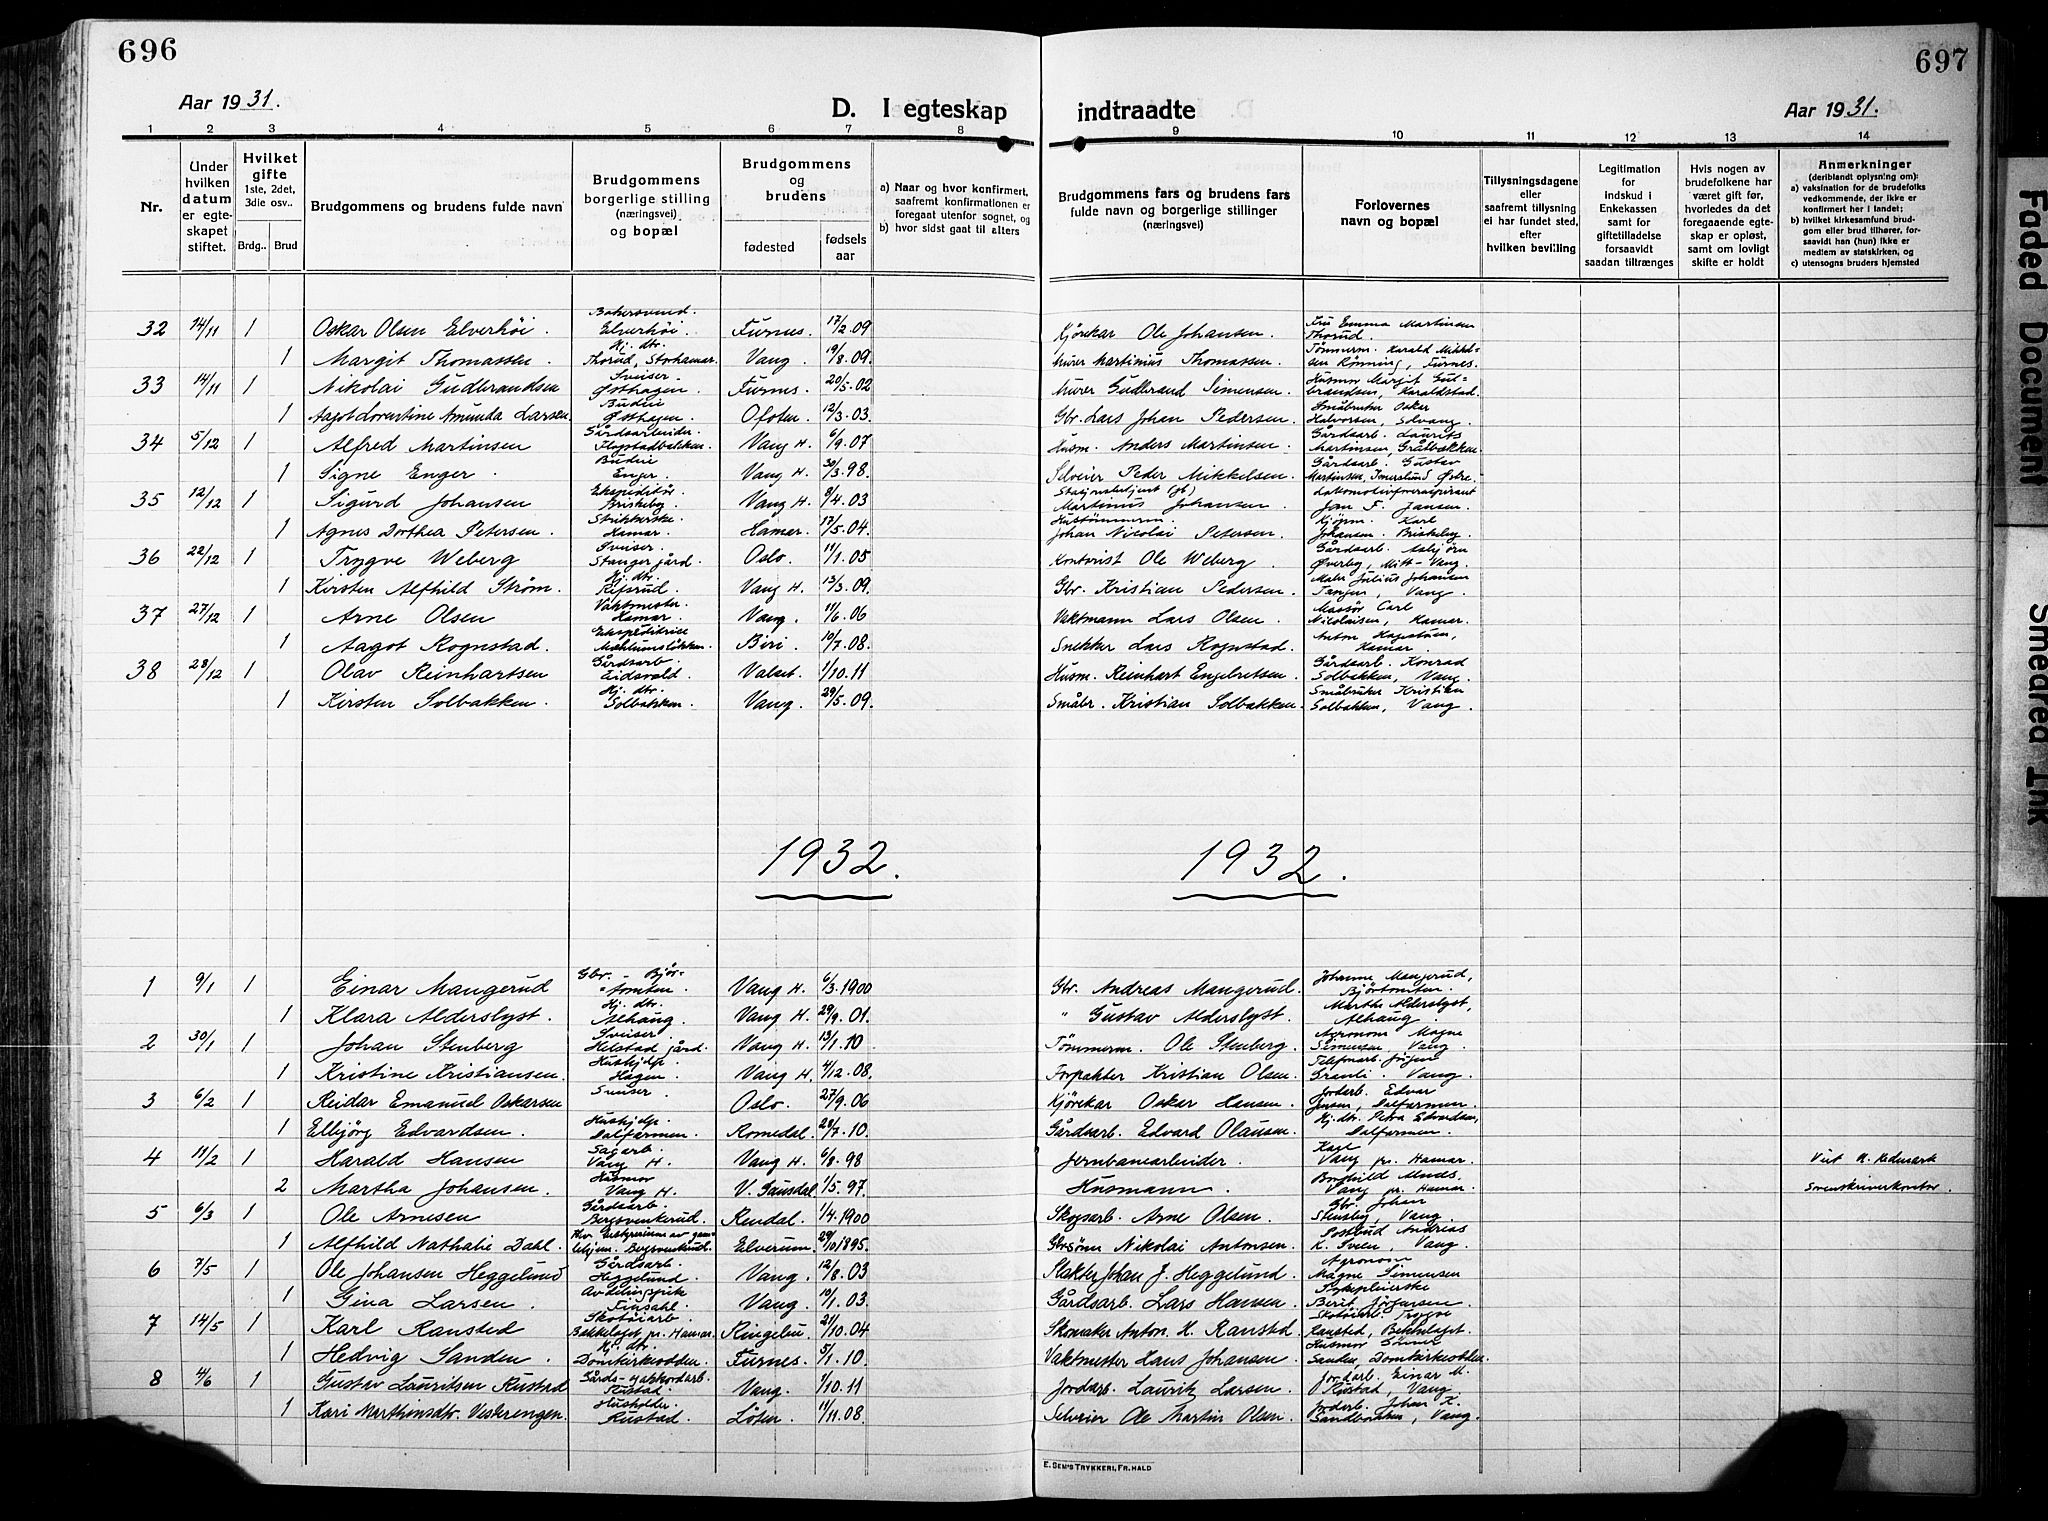 696
697
Aar 1931.
D. I egteskap indtraadte
Aar 1931.
1 2 3 4 5 6 7 8 9 10 11 12 13 14
Nr.
Under hvilken datum er egteskapet stiftet.
Hvilket gifte 1ste, 2det, 3die osv..
Brdg.. Brud
Brudgommens og brudens fulde navn
Brudgommens borgerlige stilling (næringsvei) og bopæl
Brudgommens og brudens
fødested
fødsels aar
a) Naar og hvor konfirmert, saafremt konfirmationen er foregaat utenfor sognet, og
b) hvor sidst gaat til alters
Brudgommens fars og brudens fars fulde navn og borgerlige stillinger (næringsvei)
Forlovernes navn og bopæl
Tillysningsdagene eller saafremt tillysning ei har fundet sted, efter hvilken bevilling
Legitimation for indskud i Enkekassen samt for giftetilladelse forsaavidt saadan tiltrænges
Hvis nogen av brudefolkene har været gift før, hvorledes da det foregaaende egteskap er opløst, samt om lovligt skifte er holdt
Anmerkninger (deriblandt oplysning om):
a) vaksination for de brudefolks vedkommende, der ikke er konfirmert her i landet;
b) hvilket kirkesamfund brudgom eller brud tilhører, forsaavidt han (hun) ikke er medlem av statskirken, og
c) utensogns bruders hjemsted
32 14/11 1 Oskar Olsen Elverhöi. Elverhöi. Furnes. 17/2.09 Kjörekar Ole Johansen. Fru Emma Martinsen Thorud.
1 Margit Thomassen. Hj. dtr. Thorud, Storhamar. Vang. 19/8.09. Murer Martinius Thomassen. Tömmerm. Harald Mikkelsen Rönning, Furnes.
33 14/11 1 Nikolai Gudbrandsen Sveiser. Østhagen. Furnes. 20/5.02 Murer Gudbrand Simensen. Husmor Margit Gulbrandsen, Haraldstad.
1 Aagot Lorentine Amunda Larsen. Budeie Østhagen. Ofoten. 12/3.03. Gbr. Lars Johan Pedersen. Småbruker Oskar Halvorsen, Solvang.
34 5/12 1 Alfred Martinsen Gårdsarbeider. Flagstadbakken. Vang H. 6/9.07 Husm. Anders Martinsen. Gårdsarb. Laurits Martinsen, Gråbakken.
1 Signe Enger. Budeie Enger. Vang H. 30/3.98. Selveier Peder Mikkelsen. Gårdsarb. Gustav Martinsen, Imerslund Østre.
35 12/12 1 Sigurd Johansen Ekspeditör. Briskeby. Vang H. 9/4.03 Stasjonsbetjent Martinius Johansen. Jan F. Jansen.
1 Agnes Dorthea Petersen. Strikkerske. Hamar. Hamar. 17/5.04. Hustömmerm. Johan Nicolai Petersen. Karl Johansen. Briskeby.
36 22/12 1 Trygve Weberg Sveiser. Stanger gård. Oslo. 11/1.05 Kontorist Ole Weberg Gårdsarb. Asbjörn Øverby, Mitt-Vang.
1 Kirsten Alfhild Ström. Hj. dtr. Rifsrud. Vang H. 13/3.09. Gbr. Kristian Pedersen. Maler Julius Johansen Tangen, Vang.
37 27/12 1 Arne Olsen Vaktmester. Hamar. Vang. 11/6.06 Vaktmann Lars Olsen. Massör Carl Nicolaisen, Hamar.
1 Aagot Rognstad. Ekspeditrice Mæhlumslökken. Biri. 10/7.08. Snekker Lars Rognstad. Anton Hagestuen, Hamar.
38 28/12 1 Olav Reinhartsen Gårdsarb. Eidsvold. Valset. 1/10.11 Husm. Reinhart Engebretsen. Gårdsarb. Konrad Solbakken, Vang.
1 Kirsten Solbakken. Hj. dtr. Solbakken. Vang. 29/5.09. Småbr. Kristian Solbakken. Småbruker Kristian Solbakken, Vang.
1932. 1932.
1 9/1 1 Einar Mangerud Gbr. - Björtomten. Vang H. 6/3.1900 Gbr. Andreas Mangerud. Johanne Mangerud, Björtomten.
1 Klara Alderslyst. Hj. dtr. Alhaug. Vang H. 29/9.01. " Gustav Alderslyst. Marthe Alderslyst, Alhaug.
2 30/1 1 Johan Stenberg Sveiser. Helstad gård. Vang H. 13/1.10 Tömmerm. Ole Stenberg. Agronom Magne Simensen Vang.
1 Kristine Kristiansen. Hushjelp. Hagen. Vang H. 4/12.08. Forpakter Kristian Olsen. Granli. Vang.
3 6/2 1 Reidar Emanuel Oskarsen Sveiser. Oslo. 27/9.06 Kjörekar Oskar Hansen. Jordarb. Edvar Jensen, Dalfarmen.
1 Elbjörg Edvardsen. Hushjelp. Dalfarmen. Romedal. 28/7.10. Gårdsarb. Edvard Olausen. Hj. dtr. Petra Edvardsen, Dalfarmen.
4 11/2 1 Harald Hansen Sagarb. Vang H. Vang H. 6/8.98 Jernbanearbeider. Vang pr. Hamar. Viet N. Hedmark
2 Martha Johansen. Husmor Vang H. V. Gausdal. 1/5.97. Husmann. Borghild Vang pr. Hamar. Sorenskriverkontor.
5 6/3 1 Ole Arnesen Gårdsarb. Bergsvenkerud. Rendal. 1/4.1900 Skogsarb. Arne Olsen. Gbr. Johan Stensby, Vang.
1 Alfhild Nathalie Dahl. Bergsvenkerud. Elverum. 29/10 1895. Gbrsönn Nikolai Antonsen. Postbud Andreas K. Sveen, Vang.
6 7/5 1 Ole Johansen Heggelund Gårdsarb. Heggelund. Vang. 12/8.03 Slakter Johan J. Heggelund. Agronom Magne Simensen
1 Gina Larsen. Finsahl. Vang. 10/1.03. Gårdsarb. Lars Hansen. Sykepleierske Berit Jörgensen.
7 14/5 1 Karl Ranstad Skotöiarb. Bekkelaget pr. Hamar. Ringebu. 21/10.04 Skomaker Anton H. Ranstad. Skotöiarb. Trygve Ranstad, Bekkelaget.
1 Hedvig Sanden. Hj. dtr. Domkirkeodden. Furnes. 5/1.10. Vaktmester Hans Johansen. Husmor Sanden, Domkirkeodden.
8 4/6 1 Gustav Lauritsen Rustad Gårds- og akkordarb. Rustad. Vang. 1/10.11 Jordarb. Lauritz Larsen. Jordarb. Einar M. Rustad, Vang.
1 Kari Marthinsdtr. Veskrengen. Husholder. Rustad. Löten. 11/11.08. Selveier Ole Martin Olsen. Jordarb. Johan K. Sandbakken, Vang.
E. SEM'S TRYKKERI, FR.HALD
Faded Document
Smeared Ink